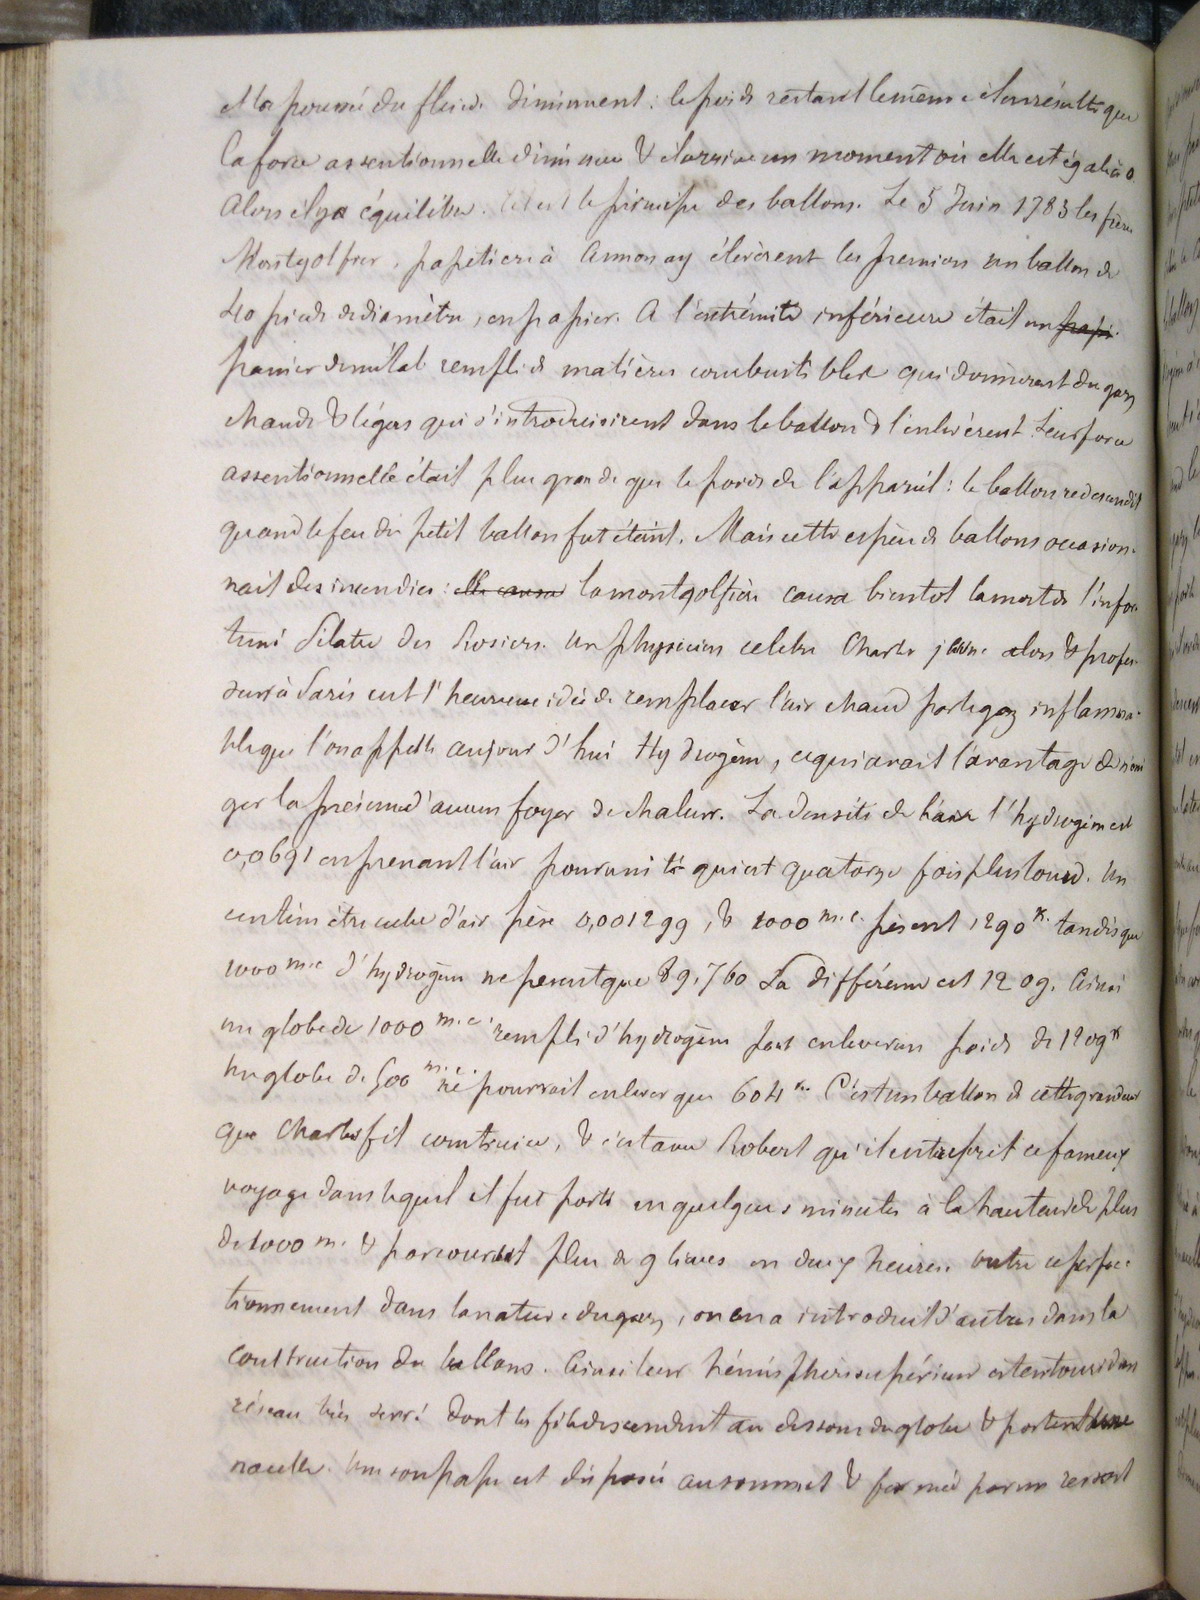 et la poussée du fluide diminuent : le poids restant le même il en résulte que
la force assentionnelle diminue & il arrive un moment où elle est égale à 0.
Alors il y a équilibre. C'est le principe des ballons. Le 5 Juin 1783 les frères
Montgolfier, papetiers à Annonay élevèrent les premiers un ballon de
40 pieds de diamètre, en papier. A l'extrémité inférieure était un papi
panier de métal rempli de matières combustibles qui donnèrent du gaz
chaud & légers qui s'introduisirent dans le ballon & l'enlevèrent. Leur force
assentionnelle était plus grande que le poids de l'appareil : le ballon redescendit
quand le feu du petit ballon fut éteint. Mais cette espèce de ballons occasion-
nait des incendies : elle causa la montgolfière causa bientot la mort de l'infor
tuné Pilatre des Rosiers. Un physicien celebre Charles jeune alors & profes-
seur à Paris eut l'heureuse idée de remplacer l'air chaud par le gaz inflamma-
ble que l'on appelle aujourd'hui Hydrogène, ce qui avait l'avantage de n'exi
ger la présence d'aucun foyer de chaleur. La densité de l'hydrogène est
0,0691 en prenant l'air pour unité qui est quatorze fois plus lourd. Un
centimètre cube d'air pèse 0,001299, & 1000 m.c. pèsent 1290 k. tandis que
1000 m.c d'hydrogène ne pesent que 89,760 La différence est 1209. Ainsi
un globe de 1000 m.c. rempli d'hydrogène peut enlever un poids de 1209 k
Un globe de 500 m.c. ne pourrait enlever que 604 k. C'est un ballon de cette grandeur
que Charles fit construire, & c'est avec Robert qu'il entreprit ce fameux
voyage dans lequel il fut porté en quelques minutes à la hauteur de plus
de 1000 m. & parcourut plus de 9 lieues en deux heures. Outre ce perfec-
tionnement dans la nature du gaz, on en a introduit d'autres dans la
construction des ballons. Ainsi leur hémisphère supérieur est entouré d'un
réseau très serré dont les fils descendent au dessous du globe & portent une
nacelle. Une soupape est disposée au sommet & formée par un ressort